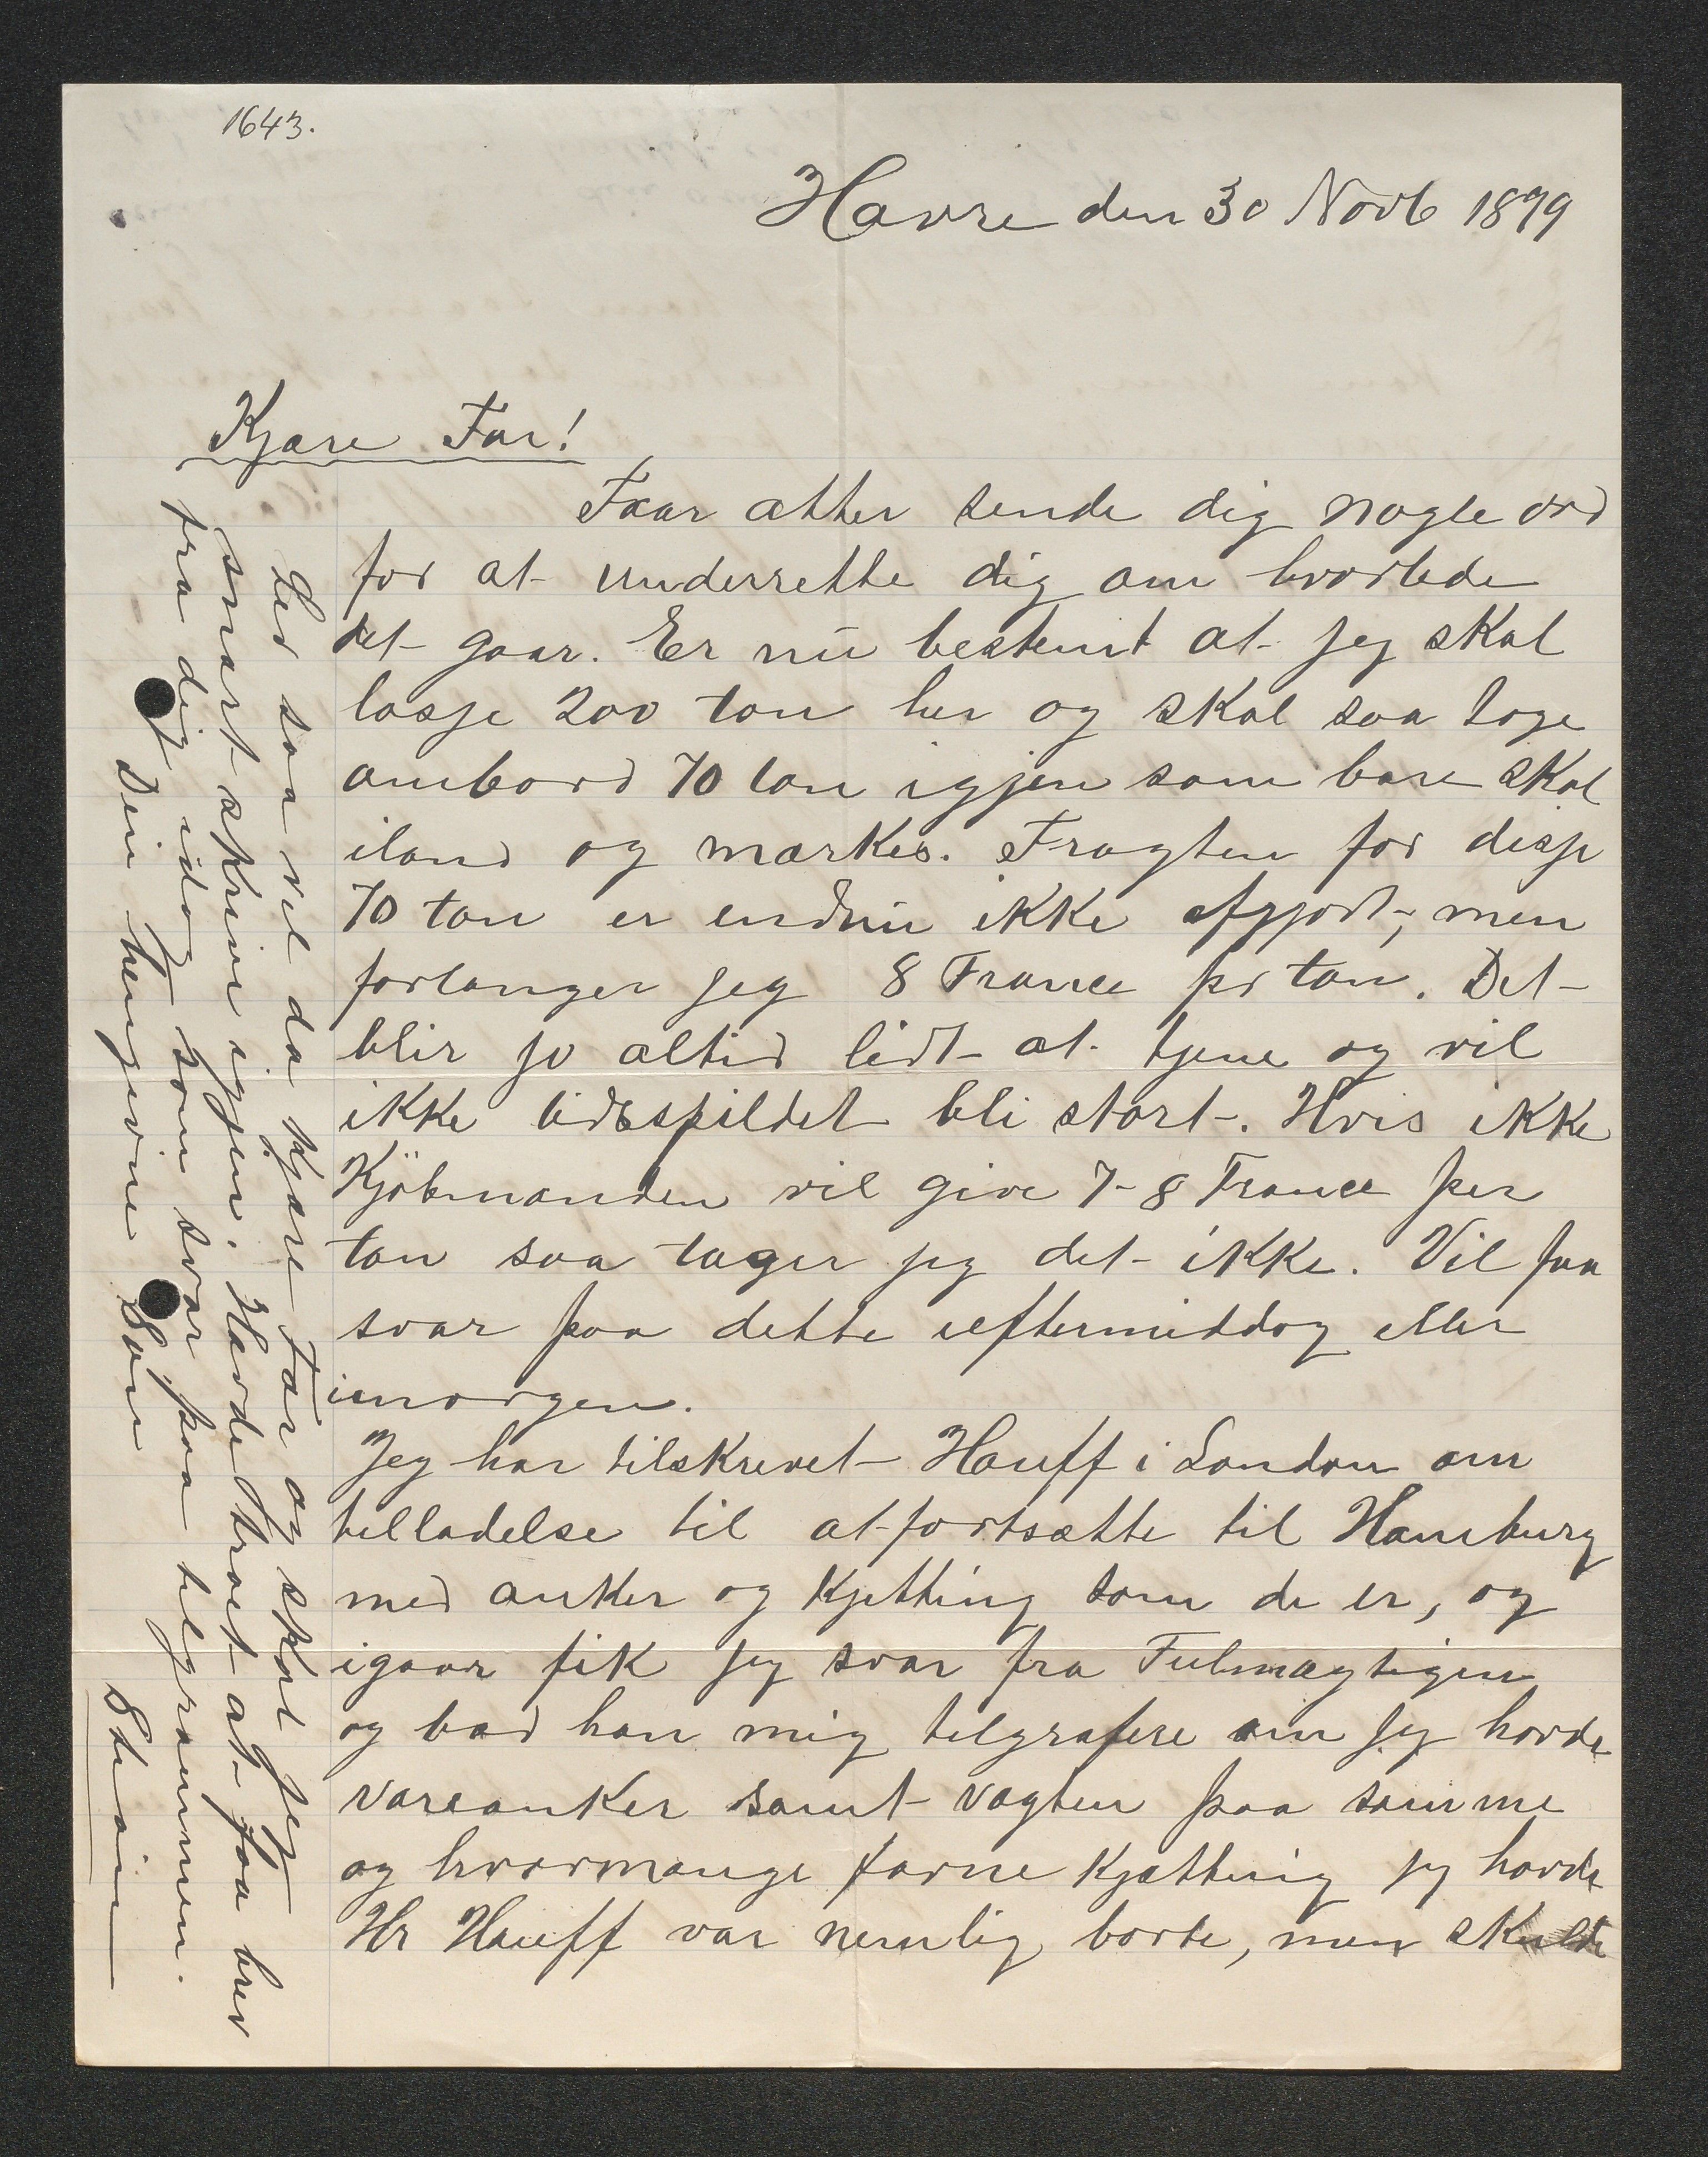 1643.
Havre den 30 Novb 1899
Kjære Far!
Faar atter sende dig nogle ord
for at underrette dig om hvorlede
det gaar. Er nu bestemt at jeg skal
losse 200 ton her og skal saa tage
ombord 70 ton igjen som bare skal
iland og mærkes. Fragten for disse
70 ton er endnu ikke afgjort, men
forlanger jeg 8 France pr ton. Det
blir jo altid lidt at tjene og vil
ikke tidsspildet bli stort. Hvis ikke
Kjöbmanden vil give 7-8 France per
ton saa tager jeg det ikke. Vil faa
svar paa dette ieftermiddag eller
imorgen.
Jeg har tilskrevet Hauff i London om
telladelse til at fortsætte til Hamburg
med anker og Kjetting som de er, og
igaar fik jeg svar fra Fulmægtigen
og bad han mig telgrafere om jeg havde
vareanker samt vægten paa samme
og hvormange favne Kjætting jeg havde
Hr Hauff var nemlig borte, men skulde
Lev saa vel da kjære Far og skal jeg
snart skrive igjen. Havde troet at faa brev
fra dig idag som svar paa telgrammen.
Din hengivne Sön